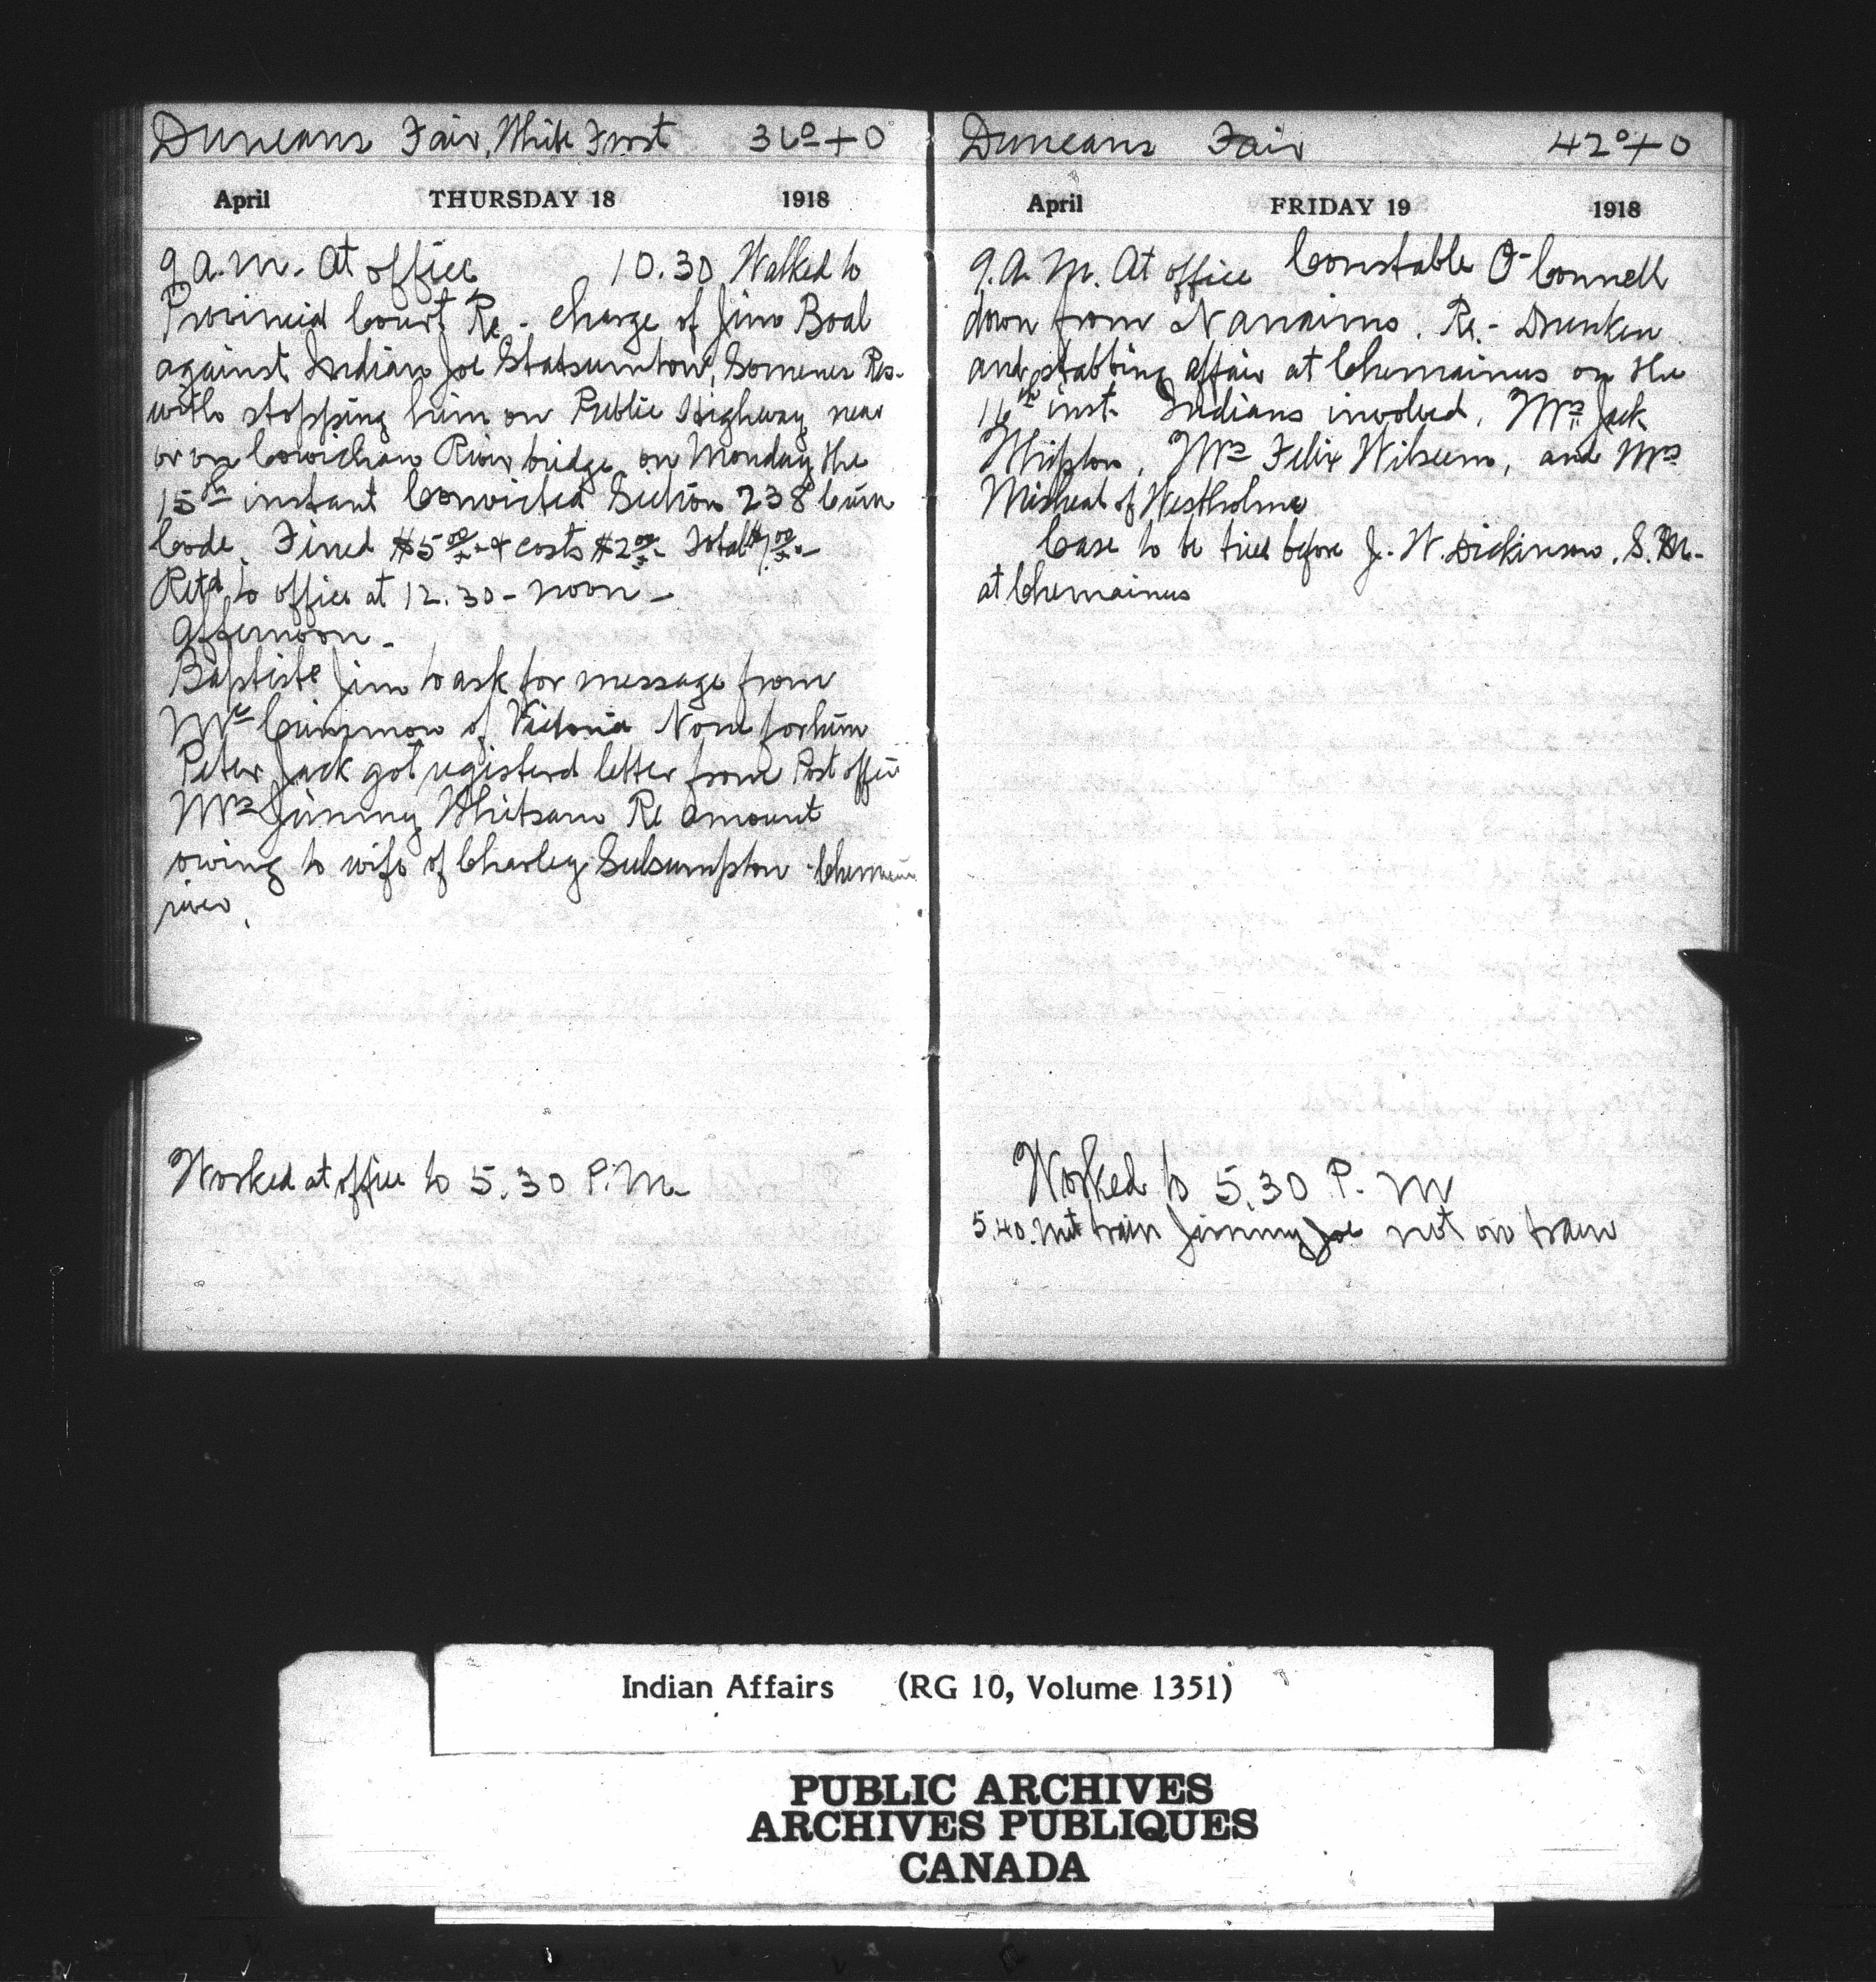 Duncans Fair, White Frost 36º+0
April THURSDAY 18 1918
9 a.m. At office 10.30 Walked to
Provincial Court Re - charge of Jim Boal
against Indian Joe Statsumton, Somenos Res.
with stopping him on Public Highway near
or on Cowichan River bridge on Monday the
15th instant Convicted Section 238 Crim
Code. Fined $5 00/xx & costs $2 00/xx Total $7 00/xx
Retd to office at 12.30 - noon -
Afternoon -
Baptiste Jim to ask for message from
Mr of Victoria None for him
Peter Jack got registerd letter from Post office
Mrs Jimmy Whitsam Re amount
owing to wife of Charley Sulsumpton Chemainus
river.
Worked at office to 5.30 P.M.
Duncans Fair 42º+0
April FRIDAY 19 1918
9. A. M. At office Constable O'Connell
down from Nanaimo. Re.- Drunken
and stabbing affair at Chemainus on the
16th inst. Indians involved, Mrs Jack
Mrs Felix and Mrs
Misheal of Westholme
Case to be tried before J. W. Dickinson, S.M.
at Chemainus
Worked to 5.30 P. M
5.40. Met train Jimmy Joe not on train
Indian Affairs (RG 10, Volume 1351)
PUBLIC ARCHIVES
ARCHIVES PUBLIQUES
CANADA